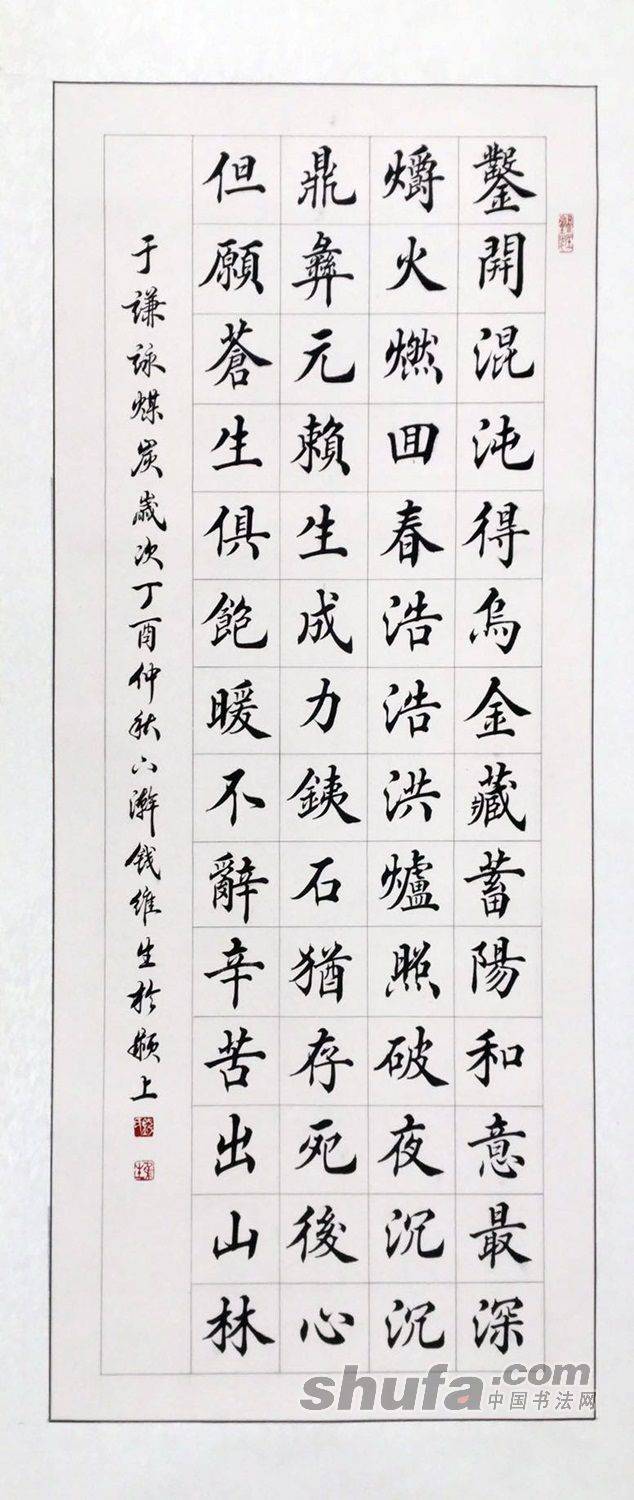 鑿開混沌得烏金藏蓄陽和意最深
爝火燃回春浩浩洪爐照破夜沉沉
鼎彝元賴生成力鉄石猶存死後心
但願蒼生俱飽暖不辭辛苦出山林
于謙詠煤炭歲次丁酉仲秋六澣钱維生於颍上
shufa.com
中国书法网